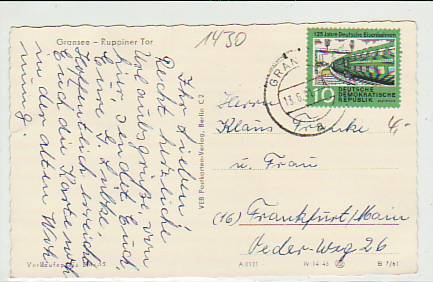 Gransee – Ruppiner Tor
1430
Ihr Lieben!
Recht herzliche
Urlaubsgrüße von
hier sendet Euch
Hoffentlich erreicht
Euch die Karte noch
in der alten Woh-
nung.
VEB Postkarten-Verlag, Berlin C 2
125 Jahre Deutsche Eisenbahnen
10
DEUTSCHE
DEMOKRATISCHE
REPUBLIK
GRAN
13.6.
Herrn
Klaus Franke
u. Frau
(16) Frankfurt/Main
Oeder-Weg 26
A 0121
IV-14-45
B 7/61